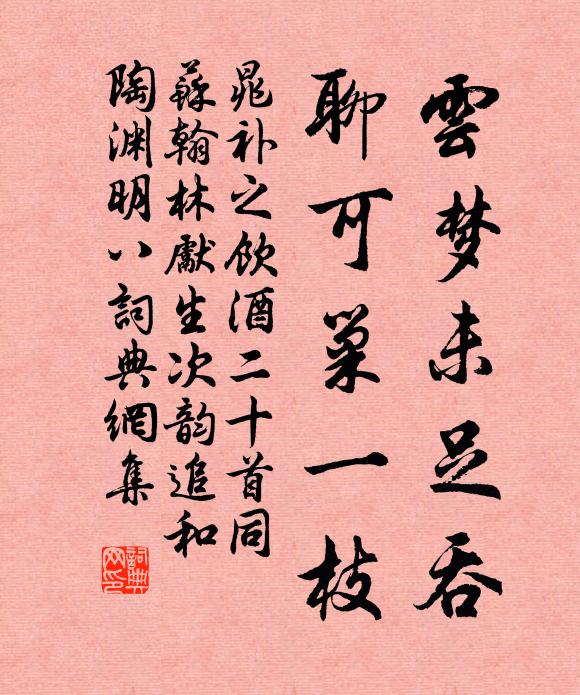 雲梦未足吞
聊可巢一枝
晁补之飲酒二十首同
蘇翰林獻生次韵追和
陶渊明八詞典網集
詞典
网印